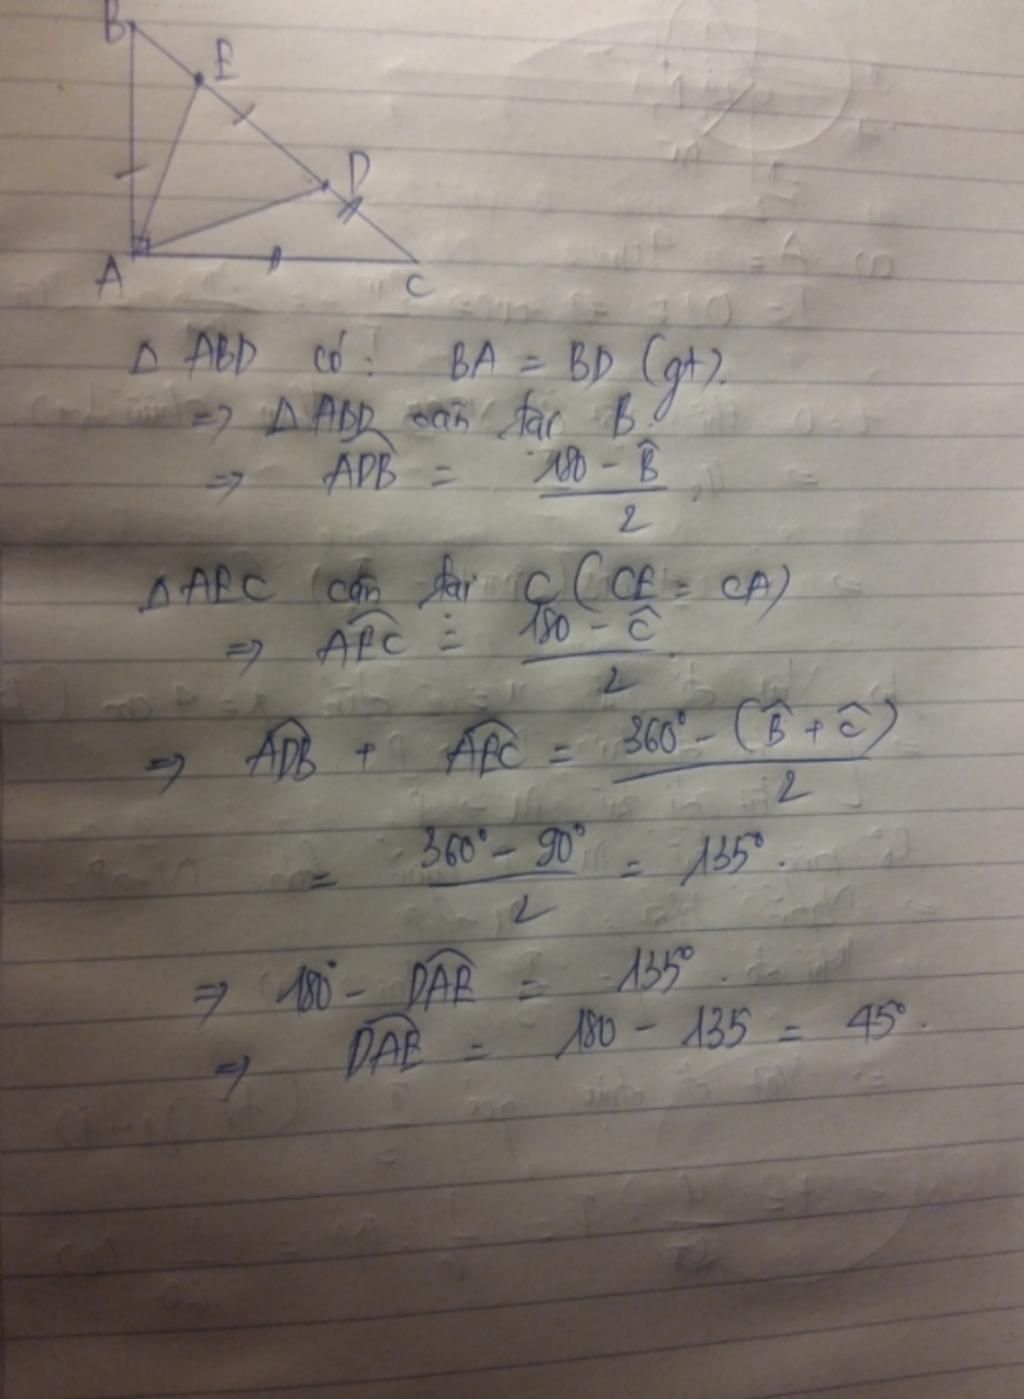 B
E
D
A
C
Δ ABD có: BA = BD (gt).
=> Δ ABD cân tại B.
=> \widehat{ADB} = \frac{180 - \hat{B}}{2}.
Δ AEC cân tại C (CE = CA)
=> \widehat{AEC} = \frac{180 - \hat{C}}{2}.
=> \widehat{ADB} + \widehat{AEC} = \frac{360° - (\hat{B} + \hat{C})}{2}
= \frac{360° - 90°}{2} = 135°.
=> 180° - \widehat{DAE} = 135°.
=> \widehat{DAE} = 180 - 135 = 45°.